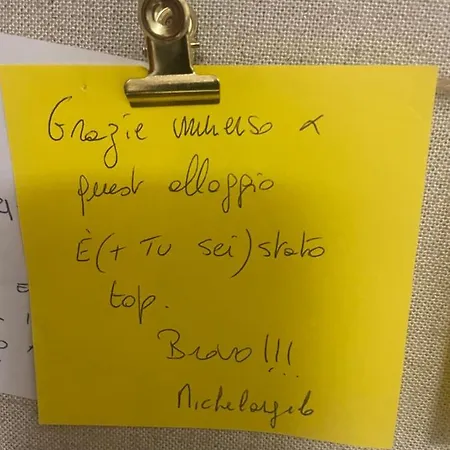 Grazie universo x
quest alloggio
È (+ Tu sei) stato
top.
Bravo!!!
Michelangelo